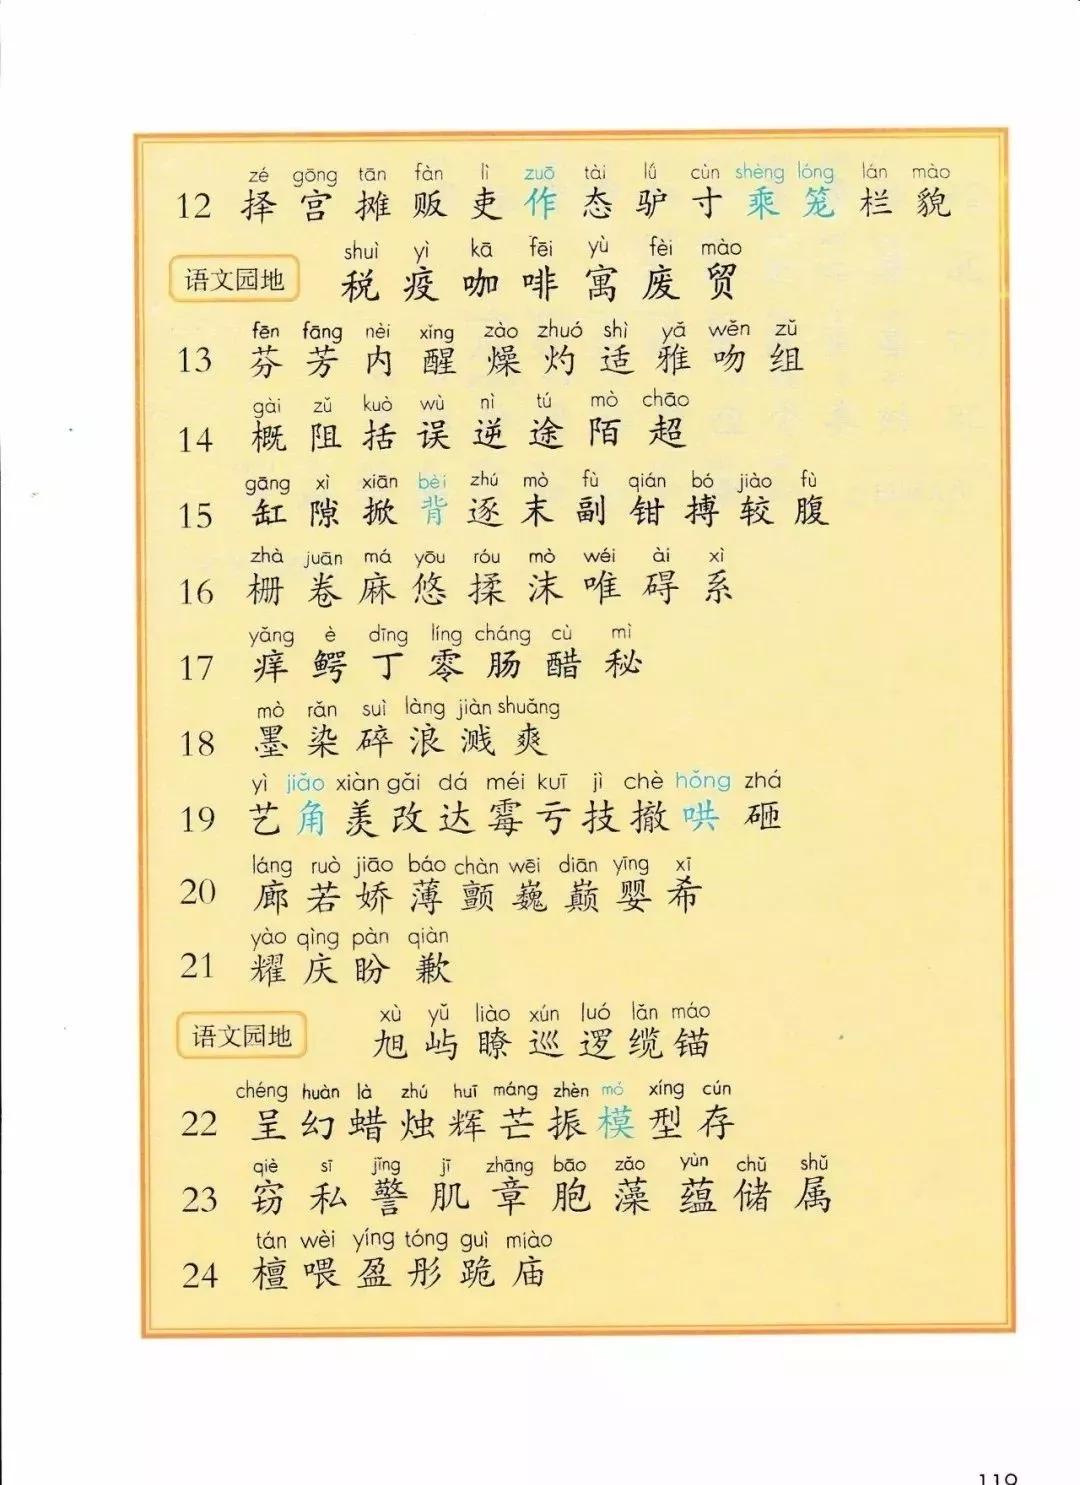 zé gōng tān fàn lì zuō tài lǘ cùn shèng lóng lán mào
12 择 宫 摊 贩 吏 作 态 驴 寸 乘 笼 栏 貌
shuì yì kā fēi yù fèi mào
语文园地 税 疫 咖 啡 寓 废 贸
fēn fāng nèi xǐng zào zhuó shì yǎ wěn zǔ
13 芬 芳 内 醒 燥 灼 适 雅 吻 组
gài zǔ kuò wù nì tú mò chāo
14 概 阻 括 误 逆 途 陌 超
gāng xì xiān bèi zhú mò fù qián bó jiào fù
15 缸 隙 掀 背 逐 末 副 钳 搏 较 腹
zhà juān má yōu róu mò wéi ài xì
16 栅 卷 麻 悠 揉 沫 唯 碍 系
yǎng è dīng líng cháng cù mì
17 痒 鳄 丁 零 肠 醋 秘
mò rǎn suì làng jiàn shuǎng
18 墨 染 碎 浪 溅 爽
yì jiǎo xiàn gǎi dá méi kuī jì chè hǒng zhá
19 艺 角 羡 改 达 霉 亏 技 撤 哄 砸
láng ruò jiāo báo chàn wēi diān yīng xī
20 廊 若 娇 薄 颤 巍 巅 婴 希
yào qìng pàn qiàn
21 耀 庆 盼 歉
xù yǔ liào xún luó lǎn máo
语文园地 旭 屿 瞭 巡 逻 缆 锚
chéng huàn là zhú huī máng zhèn mó xíng cún
22 呈 幻 蜡 烛 辉 芒 振 模 型 存
qiè sī jǐng jī zhāng bāo zǎo yùn chǔ shǔ
23 窃 私 警 肌 章 胞 藻 蕴 储 属
tán wèi yíng tóng guì miào
24 檀 喂 盈 彤 跪 庙